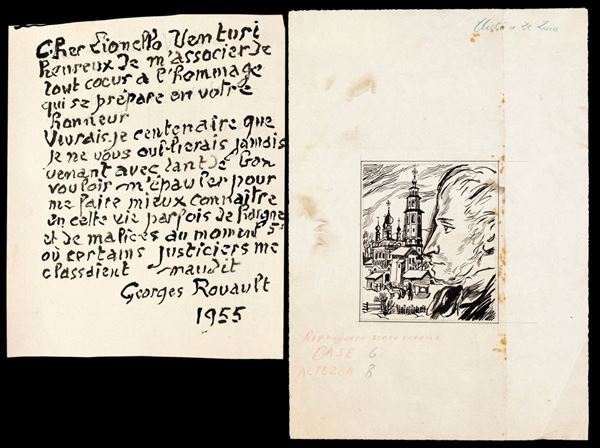 Cher Lionello Venturi
heureux de m'associer de
tout cœur a l'hommage
qui se prépare en votre
honneur
Vivrais-je centenaire que
je ne vous oublierais jamais
venant avec tant de bon
vouloir m'épauler pour
me faire mieux connaître
en cette vie parfois de hargne
et de malices au moment
où certains justiciers me
classaient maudit
Georges Rouault
1955
BASE 6
ALTEZZA 8